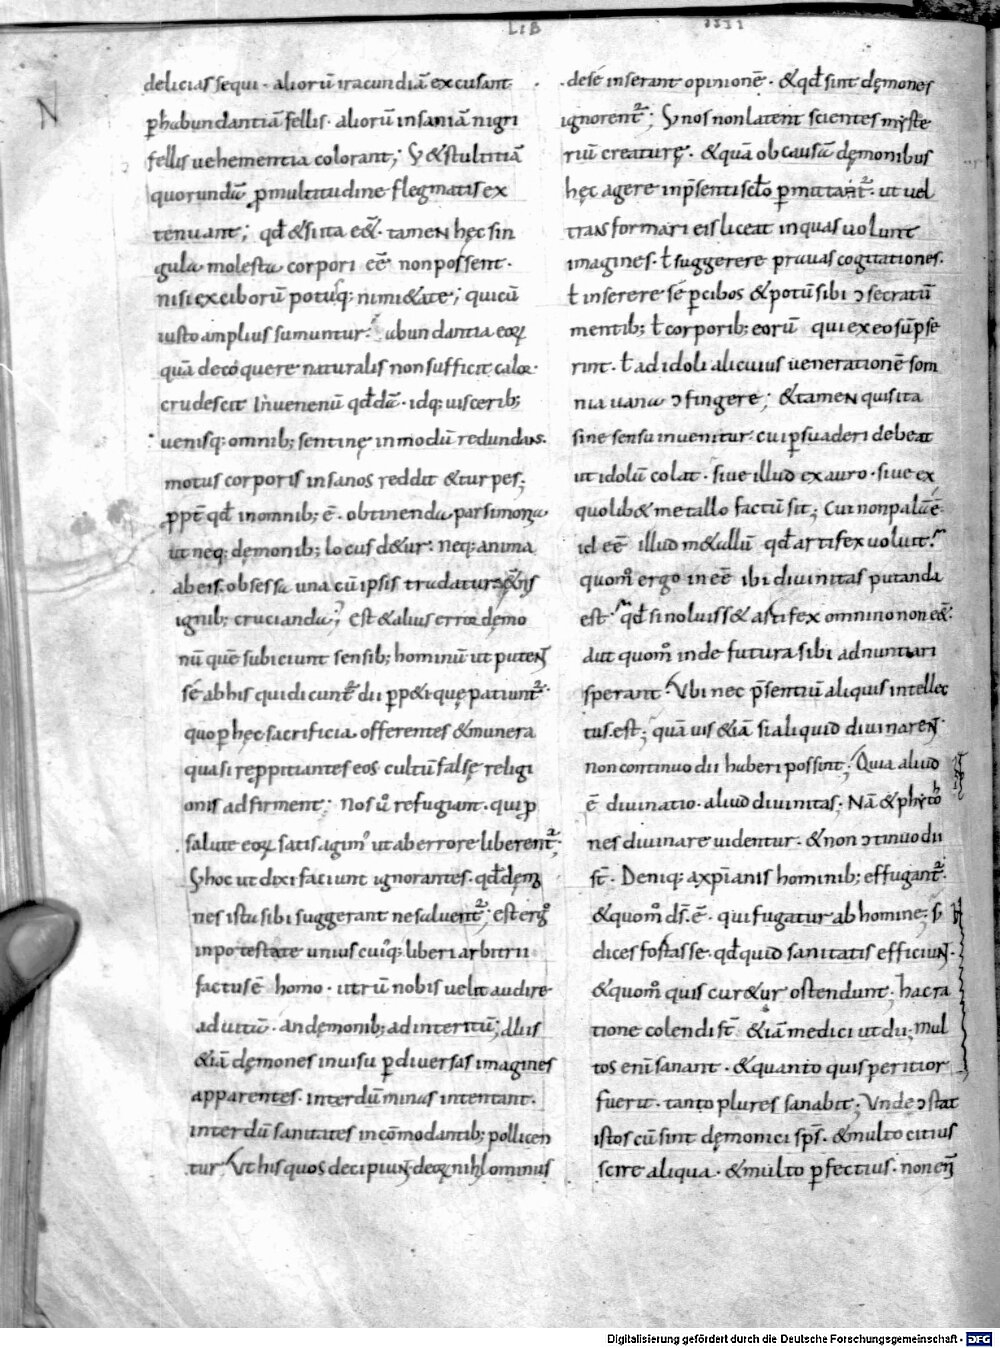 LIB IIII
N
delicias sequi · alioru᷑ iracundiā excusant ·
ꝑ habundantiā fellis · aliorū insaniā nigri
fellis uehementia colorant; S; & stultitiā
quorundā ꝑ multitudine flegmatis ex
tenuant; qđ & si ita eēt · tamen hęc sin
gula molesta corpori eē non possent ·
nisi ex ciborū potusq: nimi&ate; qui cū
iusto amplius sumuntur · abundantia eoꝝ
quā decoquere naturalis non sufficit calor ·
crudescit in uenenū qđdā · idq: uiscerib;
uenisq: omnib; sentinę in modū redundans ·
motus corporis insanos reddit & turpes;
ꝓpt̄ qđ in omnib; ē · obtinenda parsimonia
ut neq: demonib; locus d&ur · neq: anima
ab eis obsessa una cū ipsis tradatur &ernis
ignib; crucianda; Est & alius error dęmo
nū quē subiciunt sensib; hominū ut putent
se ab his qui dicunt᷑ dii ꝑp&i quę patiunt᷑ ·
quo ꝑ hęc sacrificia offerentes & munera
quasi reppitiantes eos cultū false religi
onis adfirment; nos ů refugiant · qui ꝓ
salute eoꝝ satis agim᷒ ut ab errore liberent᷑ ·
S; hoc ut dixi faciunt ignorantes · qđ dęmo
nes ista sibi suggerant ne saluent᷑; est ergo
in potestate unius cuiusq: liberi arbitrii
factus ē homo · utrū nobis uelit audire
ad uitā · an dęmonib; ad interitū; Aliis
&iā dęmones in uisu ꝑ diuersas imagines
apparentes · interdū minas intentant ·
interdū sanitates incōmodantib; pollicen
tur · Ut his quos decipiunt deoꝝ nihilominus
de se inserant opinionē · & qđ sint dęmones
ignorent᷑; S; nos non latent scientes myste
riū creaturę · & quā ob causā dęmonibus
hęc agere in p̄senti sclo ꝑmittant᷑ · ut uel
transformari eis liceat in quas uolunt
imagines · ł suggerere prauas cogitationes ·
ł inserere se ꝑ cibos & potū sibi ↄsecratū
mentib; ł corporib; eorū qui ex eo sūpse
rint · ł ad idoli alicuius uenerationē som
nia uana ↄfingere; & tamen quis ita
sine sensu inuenitur cui ꝑsuaderi debeat
ut idolū colat · siue illud ex auro · siue ex
quolib& metallo factū sit; Cui non palā ē ·
id eē illud m&allū qđ artifex uoluit ·
quom̊ ergo in eē ibi diuinitas putanda
est · qđ si noluiss& astifex omnino non eēt ·
Aut quom̊ inde futura sibi adnuntiari
sperant · Ubi nec p̄sentiū aliquis intellec
tus est; quā uis &iā si aliquid diuinarent
non continuo dii haberi possint; Quia aliud
ē diuinatio · aliud diuinitas; Nā & phyto
nes diuinare uidentur · & non ↄtinuo dii
st̄ · Deniq: a xp̄ianis hominib; effugant᷑ ·
& quom̊ ds̄ ē · qui fugatur ab homine; S;
dices fortasse · qđ quid sanitatis efficiunt ·
& quom̊ quis cur&ur ostendunt · hac ra
tione colendi st̄ &iā medici ut dii; mul
tos enī sanant · & quanto quis peritior
fuerit · tanto plures sanabit; Unde ↄstat
istos cū sint dęmonici sps̄ · & multo citius
scire aliqua · & multo ꝑfectius · non enī
Digitalisierung gefördert durch die Deutsche Forschungsgemeinschaft - DFG